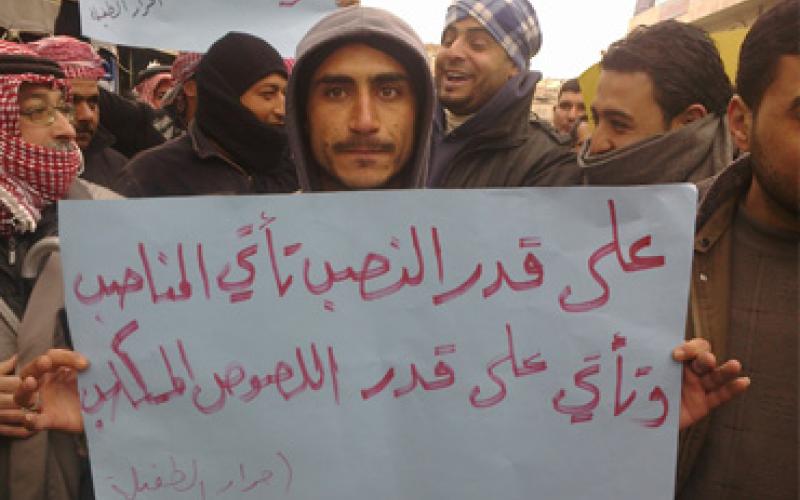 احرار الطفيلة
على قدر النصب تأتي المناصب
وتأتي على قدر اللصوص المكاسب
(حرار الطفيلة